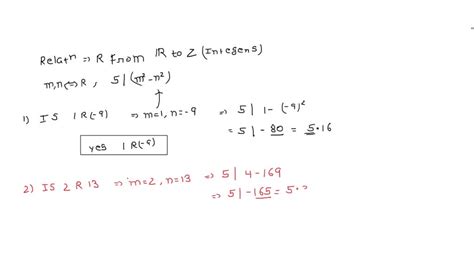 Relatⁿ ⇒ R From ℝ to Z (Integers)
m,n ⇔ R , 5 | (m² - n²)
1) IS 1 R (-9) ⇒ m=1, n=-9 ⇒ 5 | 1 - (-9)²
= 5 | - 80 = 5·16
yes 1 R (-9)
2) IS 2 R 13 ⇒ m=2, n=13 ⇒ 5 | 4 - 169
⇒ 5 | - 165 = 5·